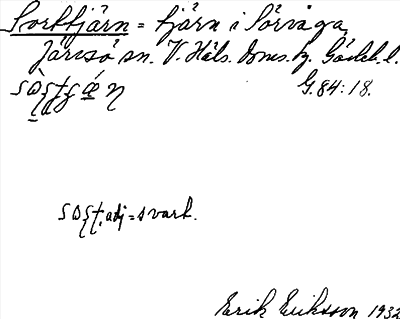 Sorttjärn = tjärn i Sörvåga,
Järvsö sn. V. Häls. doms.hg. Gävleb. l.
G. 84: 18.
adj = svart.
Erik Eriksson 1932